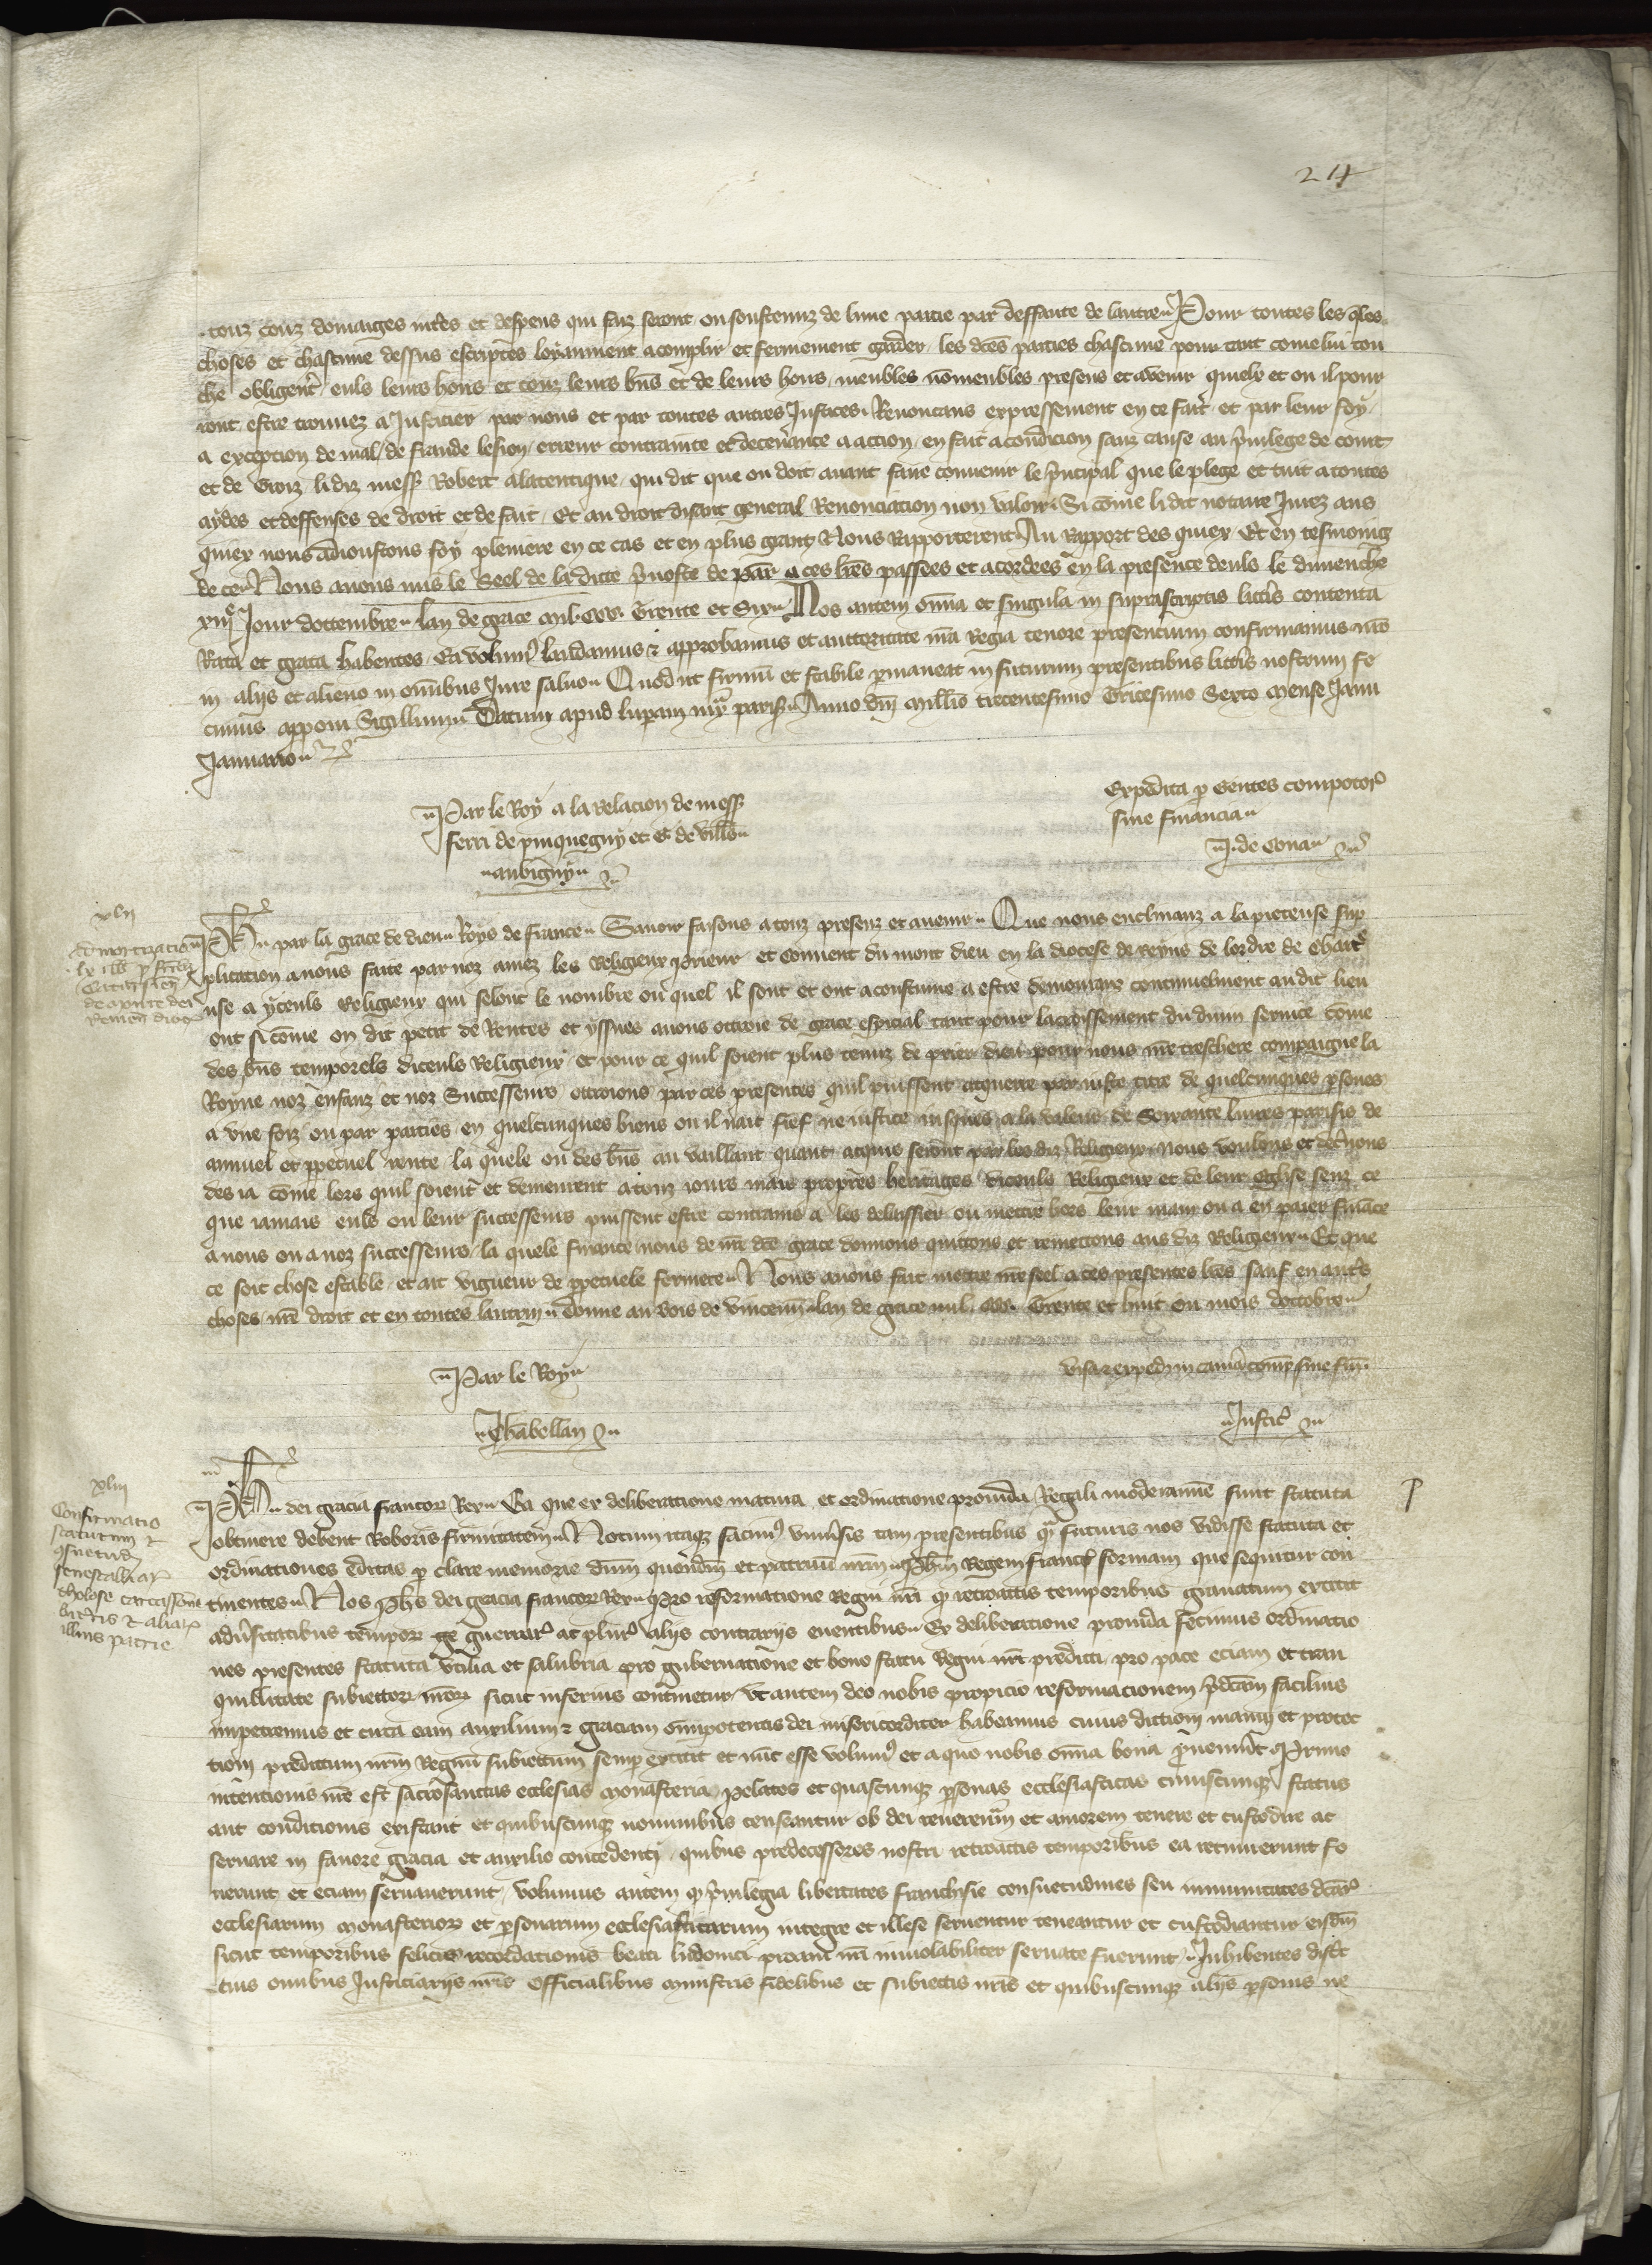 24
touz couz domaiges intes et despens qui faiz seront ou soustenuz de lune partie par deffaute de lautre Pour toutes les qles
choses et chascune dessus escriptes loyaument acomplir et fermement garder les dces parties chascune pour tant come lui tou
che obligent euls leurs hoirs et touz leurs bns et de leurs hoirs meubles nomeubles presens et avenir quielx et ou il pour
ront estre trouvez a Justicier par nous et par toutes autres Justices Renoncans expressement en ce fait et par leur foy
a excepcion de mal de fraude lesion erreur contrainte et decevance a accion en fait a condicion sanz cause au privilege de
et de Croiz li diz mess Robert alatentique qui dit que on doit avant faire convenir le principal que le plege et tuit a toutes
aydes et deffenses de droit et de fait Et au droit disant general Renonciation non valoir Si come li dit notaire Jurez aus
quiex nous adioustons foy pleniere en ce cas et en plus grant Nous Rapporterent Au Rapport des quiex Et en tesmoing
de ce Nous avons mis le Seel de la dicte prvoste de Par a ces lres passees et acordees en la presence deuls le dimenche
xiii Jour doctembre lan de grace mil CCC Trente et Six Nos autem omia et singula in suprascriptis littis contenta
Rata et grata habentes Ea volum laudamus & approbamus et auctoritate nra Regia tenore presentium confirmamus nro
in aliis et alieno in omibus Jure salvo Quod ut firmu et stabile pmaneat in futurum presentibus littis nostrum fe
cimus apponi Sigillum Datum apud luparam iux paris Anno dni millio trecentesimo Tricesimo Sexto mense Janu
Januario
Par le Roy a la relacion de mess
ferri de pinquegny et G de vill
aubigny
Expedita p Gentes compotor
sine financia
J. de Cona
xlii
admortizatio
lx lib p
Cartusien
de monte dei
remen dioc
Ph par la grace de dieu Roys de france Savoir faisons a touz presenz et avenir Que nous enclinanz a la piteuse sup
plication a nous faite par noz amez les Religieux prieur et couvent du mont dieu en la diocese de reyns de lordre de chart
use a yceuls Religieux qui selont le nombre ou quel il sont et ont acoustume a estre demourant continuelment audit lieu
ont si come on dit petit de Rentes et yssues avons ottroie de grace especial tant pour lacroissement du divin service come
des bns temporels diceuls Religieux et pour ce quil soient plus tenuz de prier dieu pour nous nre treschere compaigne la
Royne noz enfanz et noz Successeurs ottroions par ces presentes quil puissent acquerre par iuste titre de quelcunques psones
a une foiz ou par parties en quelcunques biens ou il nait fief ne iustice iusques a la valeur de Soixante livres parisis de
annuel et ppetuel rente la quele ou des bns au vaillant quant acquis seront par les diz Religieux Nous voulons et decernons
des ia come lors quil soient et demeurent a touz iours mais propres heritages diceuls Religieux et de leur eglise senz ce
que iamais euls ou leur successeurs puissent estre contrains a les delaissier ou mettre hors leur main ou a en paier finace
a nous ou a noz successeurs la quele finance nous de nre dce grace donnons quittons et remettons aus diz Religieux Et que
ce soit chose estable et ait vigueur de ppetuele fermete Nous avons fait mettre nre seel a ces presentes lres sauf en autrs
choses nre droit et en toutes lautrui Donne au bois de vincenn lan de grace mil CCC Trente et huit ou mois doctobre
Par le Roy
Chabellan
visa & exped in cama comp sine fin
Justic
xliii
Confirmatio
statutum &
gsuetud
senescalliar
tholose carcassone
bitrris & aliar
illius patrie
Ph dei gracia francor Rex Ea que ex deliberatione matura et ordinatione provida Regali moderamine sunt statuta
obtinere debent Roboris firmitatem Notum itaqz facim universis tam presentibus q futuris nos vidisse statuta et
ordinationes editas p clare memorie dnm quondm et patruu nrm Phm Regem franc formam que sequitur con
tinentes Nos Phs dei gracia francor Rex Pro reformatione Regni nri q retroactis temporibus gravatum extitit
adversitatibus tempor ge guerrar ac plur aliis contrariis eventibus Ex deliberatione provida fecimus ordinatio
nes presentes statuta utilia et salubria pro gubernatione et bono statu Regni nri predicti pro pace eciam et tran
quillitate subiector nror sicut inferius continetur Ut autem deo nobis propicio reformacionem pdcam facilius
impetremus et circa eam auxilium & graciam omipotentis dei misericorditer habeamus cuius dictioni manui et protec
tioni predictum nrm Regnu subiectum semp extitit et nuc esse volum et a quo nobis omia bona pveniut Primo
intentionis nre est sacrosanctas ecclesias monasteria prelatos et quascunqz psonas ecclesiasticas cuiuscunqz status
aut conditionis existant et quibuscunqz nominibus censeantur ob dei reverentia et amorem tenere et custodire ac
servare in favore gracia et auxilio concedenti quibus predecessores nostri retroactis temporibus ea tenuerunt fo
verunt et eciam servaverunt volumus autem q privilegia libertates franchisie consuetudines seu inmunitates dcar
ecclesiarum monasterior et psonarum ecclesiasticarum integre et illese serventur teneantur et custodiantur eisdm
sicut temporibus felicis recordationis beati ludovici proavi nri inviolabiliter servate fuerunt Inhibentes dist
tius omibus Justiciariis nris Officialibus ministris fidelibus et subiectis nris et quibuscunqz aliis psonis ne